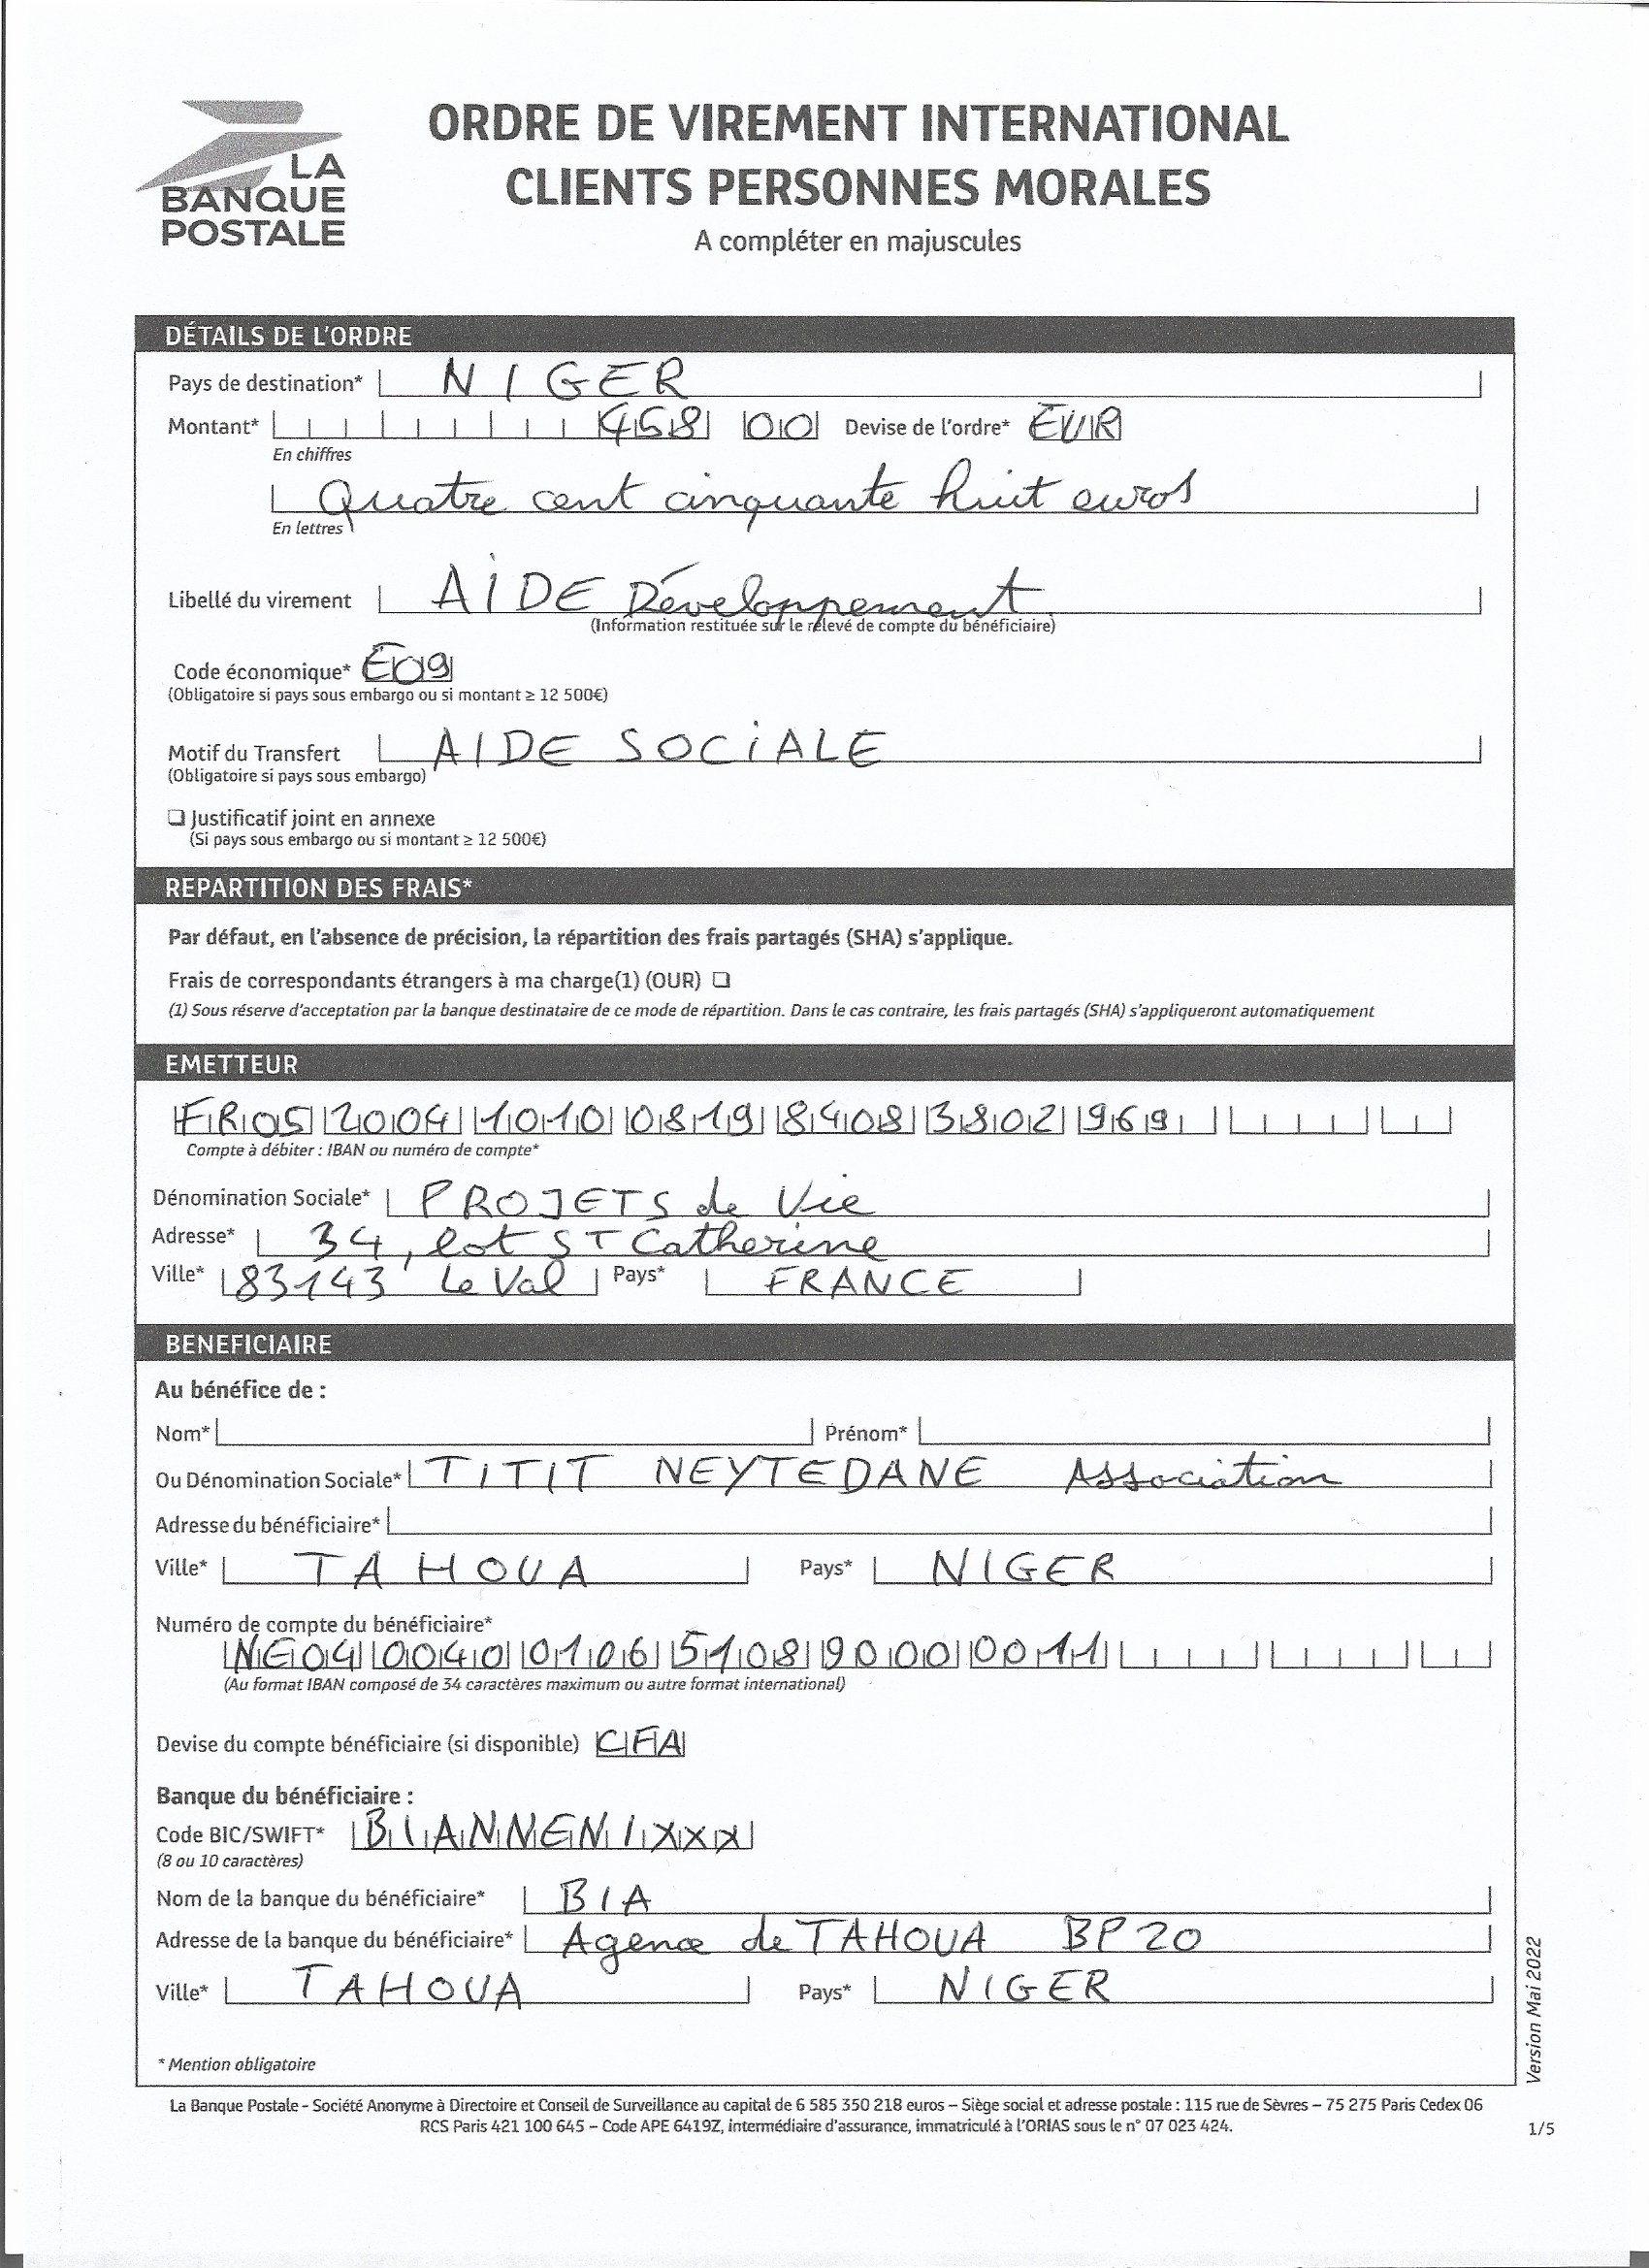 LA
BANQUE
POSTALE
ORDRE DE VIREMENT INTERNATIONAL
CLIENTS PERSONNES MORALES
A compléter en majuscules
DÉTAILS DE L'ORDRE
Pays de destination* NIGER
Montant* 458 00 Devise de l'ordre* EUR
En chiffres
Quatre cent cinquante huit euros
En lettres
Libellé du virement AIDE Développement
(Information restituée sur le relevé de compte du bénéficiaire)
Code économique* E09
(Obligatoire si pays sous embargo ou si montant ≥ 12 500€)
Motif du Transfert AIDE SOCiALE
(Obligatoire si pays sous embargo)
❑ Justificatif joint en annexe
(Si pays sous embargo ou si montant ≥ 12 500€)
REPARTITION DES FRAIS*
Par défaut, en l'absence de précision, la répartition des frais partagés (SHA) s'applique.
Frais de correspondants étrangers à ma charge(1) (OUR) ❑
(1) Sous réserve d'acceptation par la banque destinataire de ce mode de répartition. Dans le cas contraire, les frais partagés (SHA) s'appliqueront automatiquement
EMETTEUR
FR05 2004 1010 0819 8408 3802 969
Compte à débiter : IBAN ou numéro de compte*
Dénomination Sociale* PROJETS de Vie
Adresse* 34, lot ST Catherine
Ville* 83143 Le Val Pays* FRANCE
BENEFICIAIRE
Au bénéfice de :
Nom* Prénom*
Ou Dénomination Sociale* TiTIT NEYTEDANE Association
Adresse du bénéficiaire*
Ville* TAHOUA Pays* NIGER
Numéro de compte du bénéficiaire*
NE04 0040 0106 5108 9000 0011
(Au format IBAN composé de 34 caractères maximum ou autre format international)
Devise du compte bénéficiaire (si disponible) CFA
Banque du bénéficiaire :
Code BIC/SWIFT* BIANNENIXXX
(8 ou 10 caractères)
Nom de la banque du bénéficiaire* BIA
Adresse de la banque du bénéficiaire* Agence de TAHOUA BP 20
Ville* TAHOUA Pays* NIGER
* Mention obligatoire
Version Mai 2022
La Banque Postale - Société Anonyme à Directoire et Conseil de Surveillance au capital de 6 585 350 218 euros – Siège social et adresse postale : 115 rue de Sèvres – 75 275 Paris Cedex 06
RCS Paris 421 100 645 – Code APE 6419Z, intermédiaire d'assurance, immatriculé à l'ORIAS sous le n° 07 023 424.
1/5